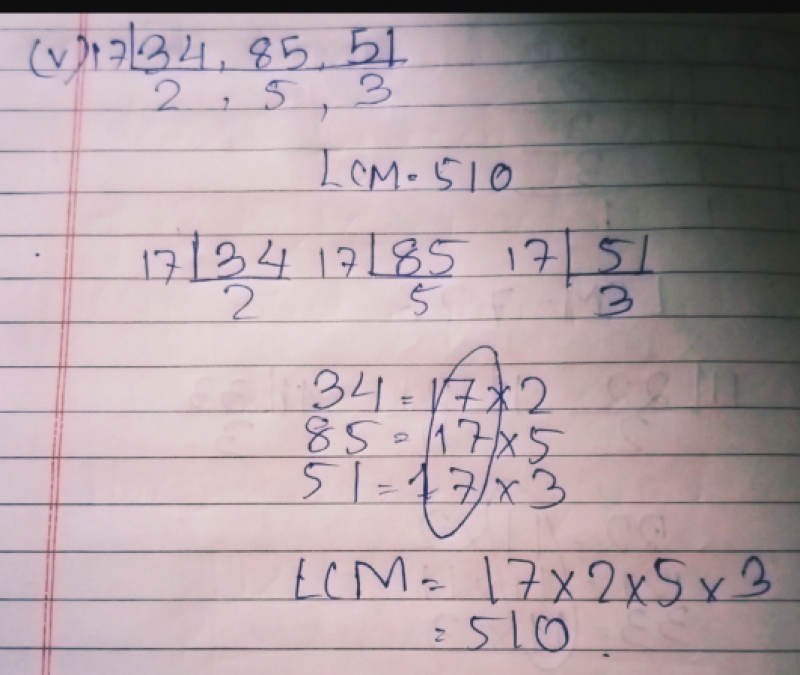 (v) 17|34, 85, 51
2, 5, 3
LCM = 510
17|34 17|85 17|51
2 5 3
34 = 17 × 2
85 = 17 × 5
51 = 17 × 3
LCM = 17 × 2 × 5 × 3
= 510